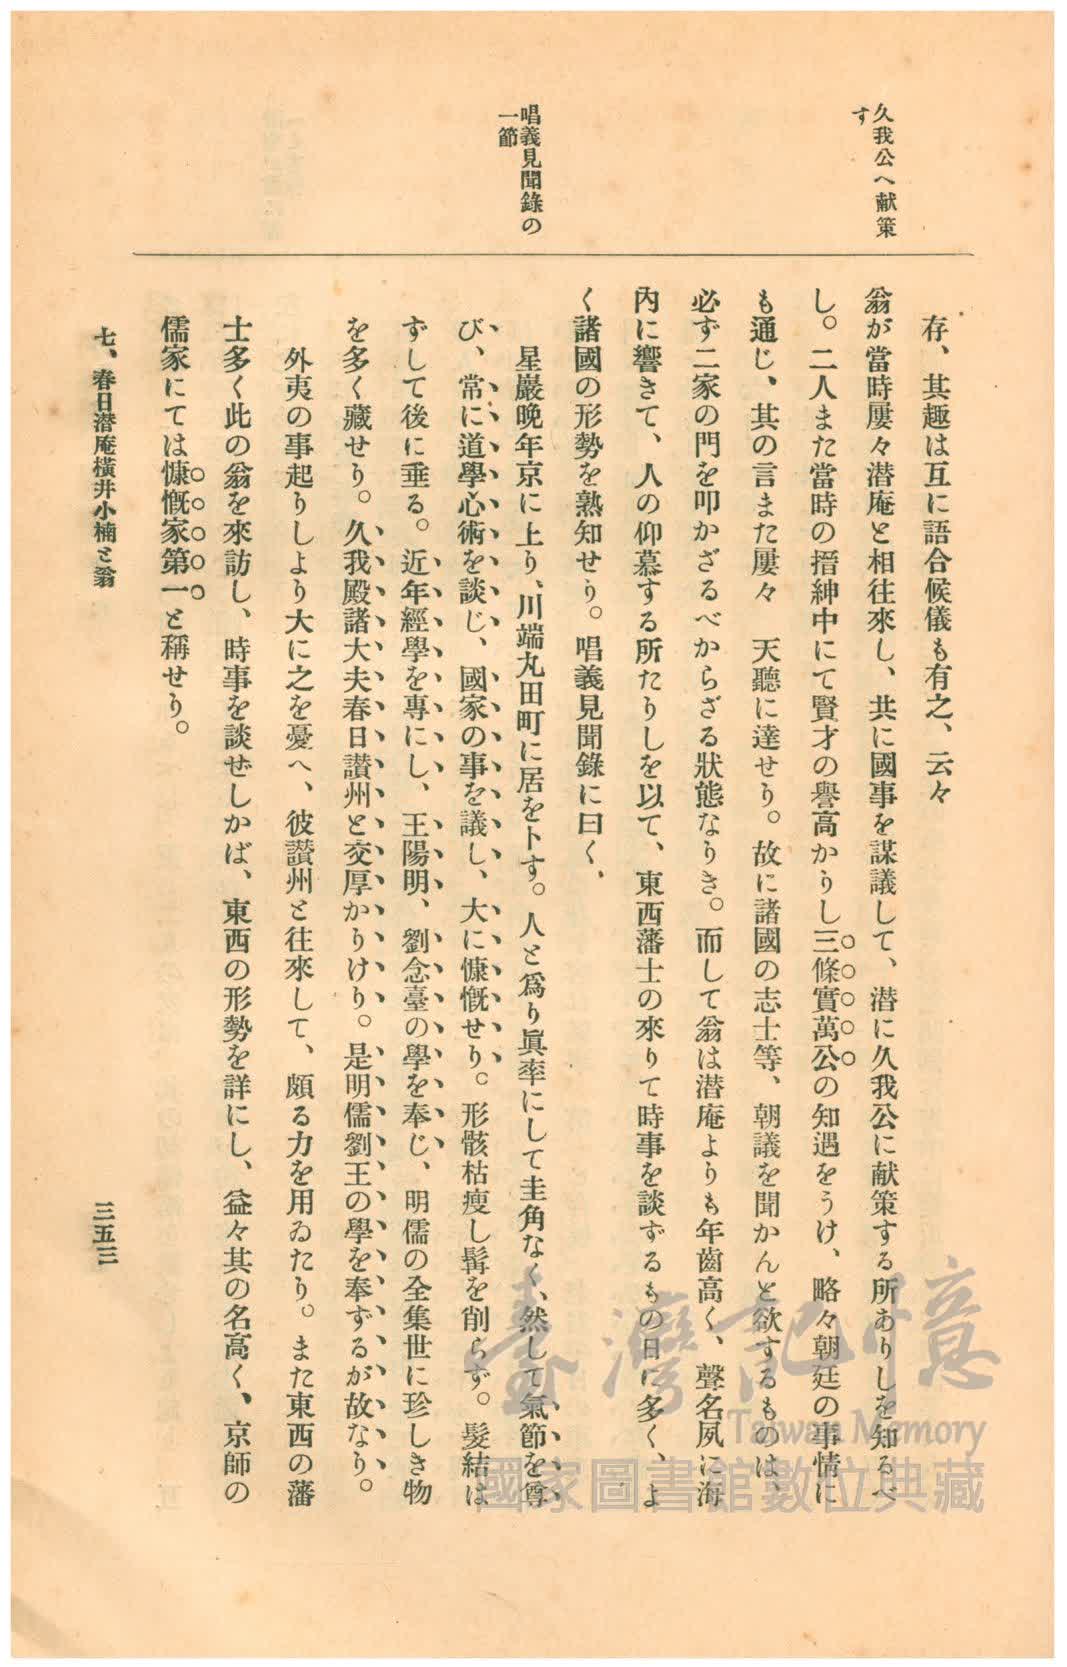 久我公へ献策
す
唱義見聞錄の
一節
存、其趣は互に語合候儀も有之、云々
翁が當時屢々潜庵と相往來し、共に國事を謀議して、潜に久我公に献策する所ありしを知るべ
し。二人また當時の搢紳中にて賢才の譽高かりし三條實萬公の知遇をうけ、略々朝廷の事情に
も通じ、其の言また屢々　天聽に達せり。故に諸國の志士等、朝議を聞かんと欲するものは、
必ず二家の門を叩かざるべからざる狀態なりき。而して翁は潜庵よりも年齒高く、聲名夙に海
內に響きて、人の仰慕する所たりしを以て、東西藩士の來りて時事を談ずるもの日に多く、よ
く諸國の形勢を熟知せり。唱義見聞錄に曰く、
星巖晩年京に上り、川端丸田町に居を卜す。人と爲り眞率にして圭角なく、然して氣節を尊
び、常に道學心術を談じ、國家の事を議し、大に慷慨せり。形骸枯瘦し髯を削らず。髮結は
ずして後に垂る。近年經學を專にし、王陽明、劉念臺の學を奉じ、明儒の全集世に珍しき物
を多く藏せり。久我殿諸大夫春日讃州と交厚かりけり。是明儒劉王の學を奉ずるが故なり。
外夷の事起りしより大に之を憂へ、彼讃州と往來して、頗る力を用ゐたり。また東西の藩
士多く此の翁を來訪し、時事を談ぜしかば、東西の形勢を詳にし、益々其の名高く、京師の
儒家にては慷慨家第一と稱せり。
七、春日潜庵橫井小楠と翁
三五三
臺灣記憶
Taiwan Memory
國家圖書館數位典藏